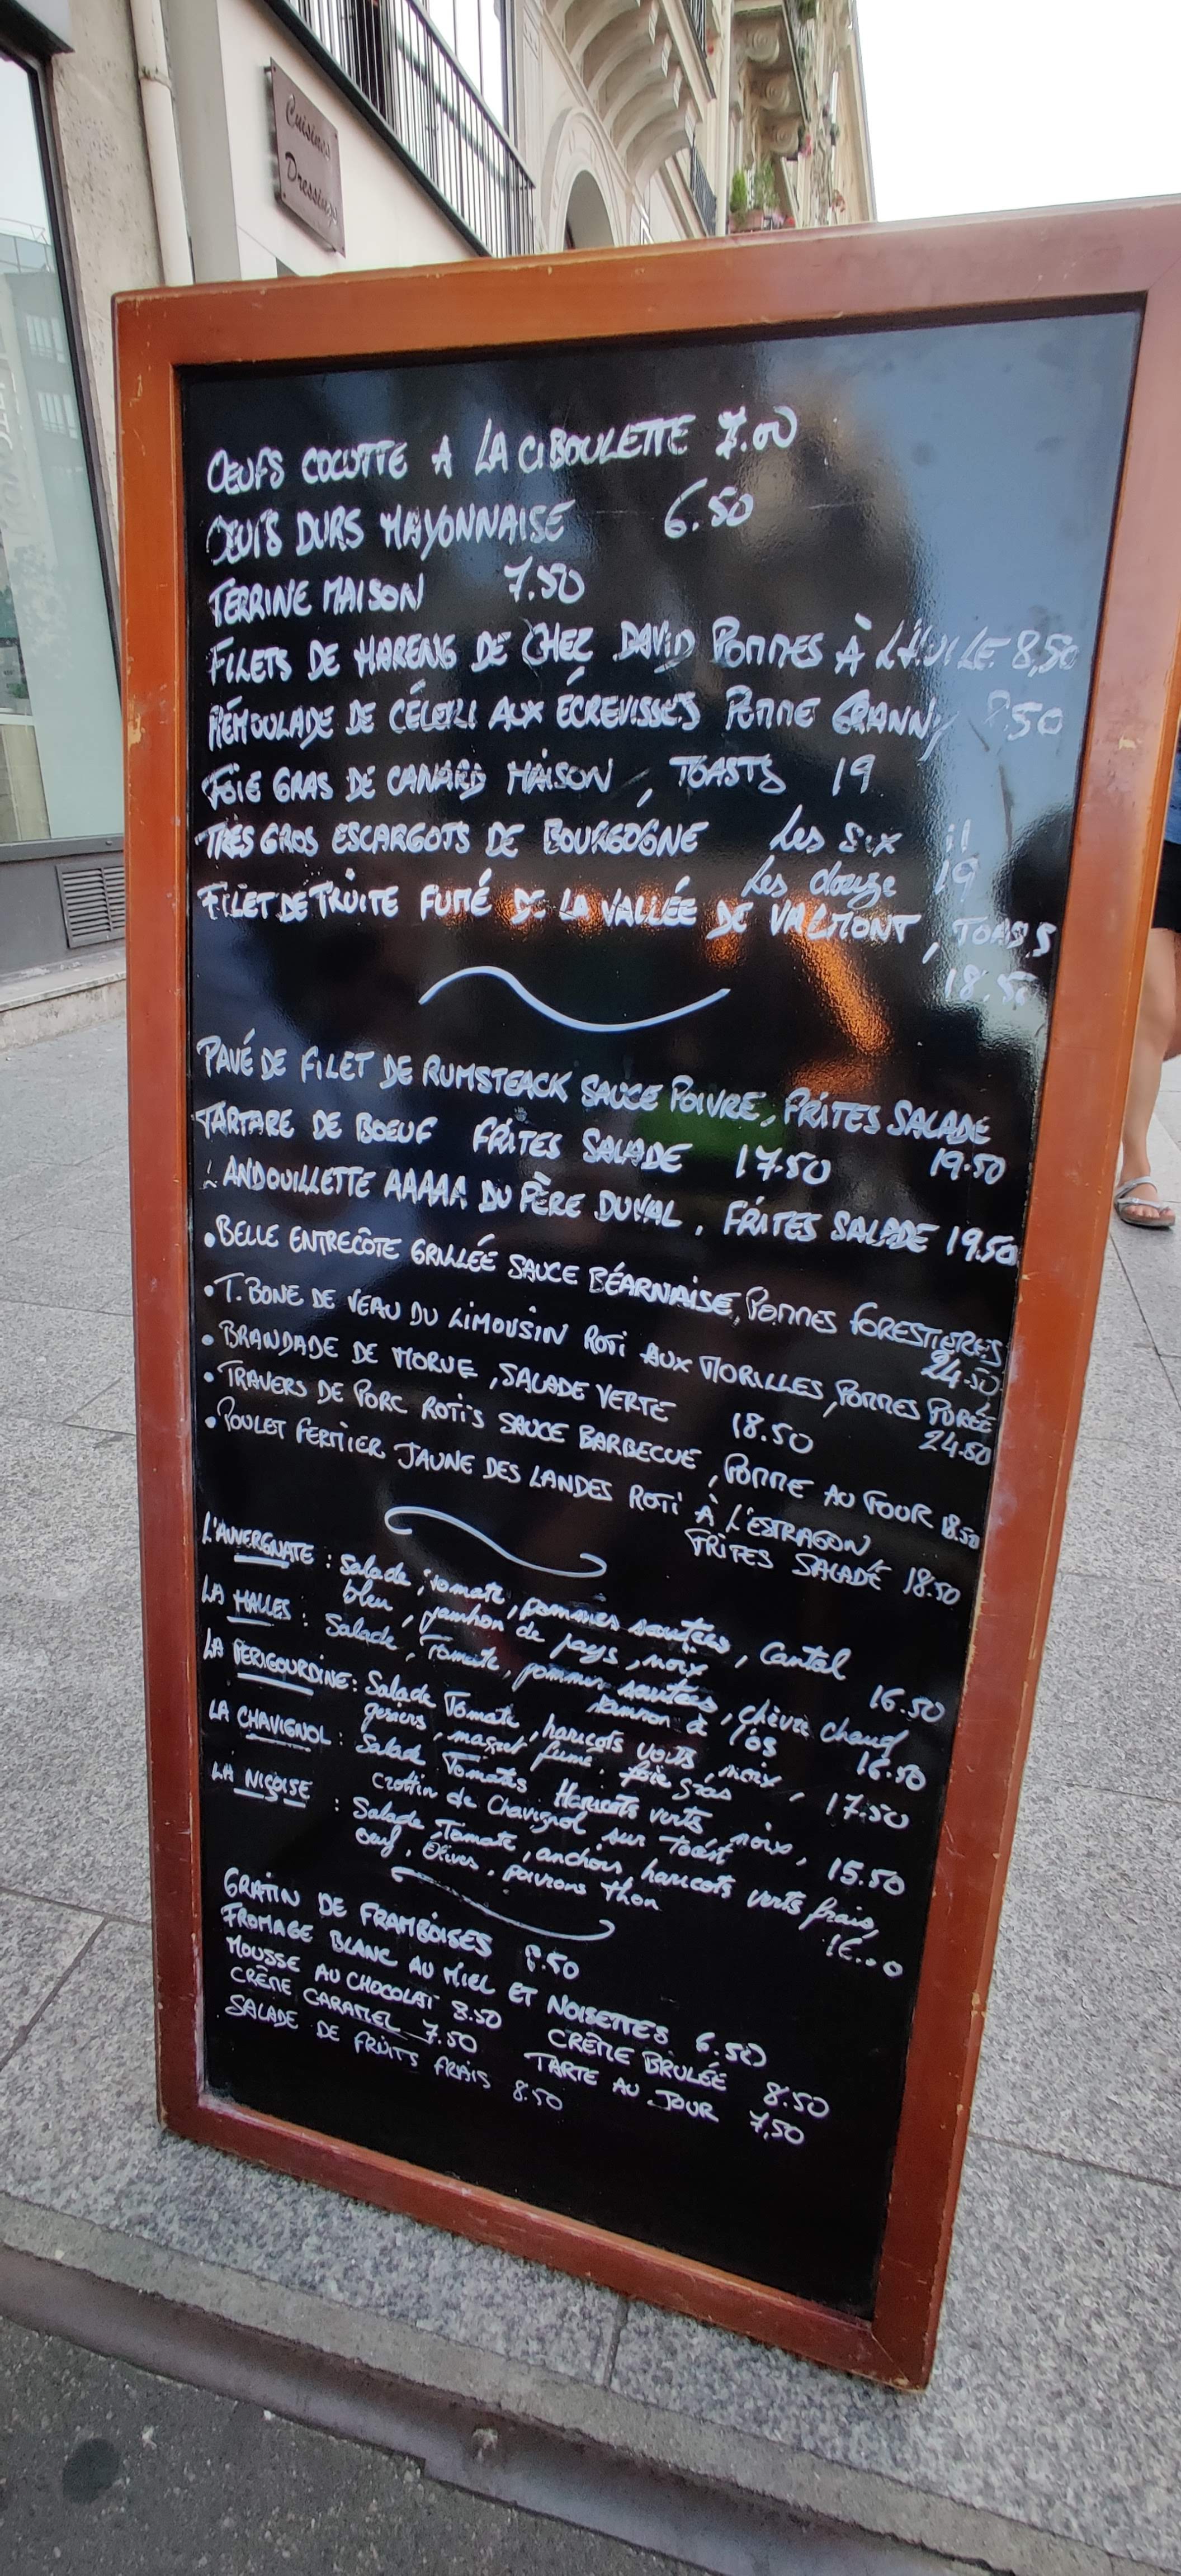 Cuisines
Dressings
OEUFS COCOTTE A LA CIBOULETTE 7.00
OEUFS DURS MAYONNAISE 6.50
TERRINE MAISON 7.50
FILETS DE HARENG DE CHEZ DAVID POMMES À L'HUILE 8,50
RÉMOULADE DE CÉLERI AUX ÉCREVISSES POMME GRANNY 50
FOIE GRAS DE CANARD MAISON, TOASTS 19
TRÈS GROS ESCARGOTS DE BOURGOGNE Les Six 11
Les douze 19
FILET DE TRUITE FUMÉ DE LA VALLÉE DE VALMONT, TOASTS
18.50
PAVÉ DE FILET DE RUMSTEACK SAUCE POIVRE, FRITES SALADE
19.50
TARTARE DE BOEUF FRITES SALADE 17.50
L'ANDOUILLETTE AAAAA DU PÈRE DUVAL, FRITES SALADE 19.50
• BELLE ENTRECÔTE GRILLÉE SAUCE BÉARNAISE, POMMES FORESTIERES
24.50
• T.BONE DE VEAU DU LIMOUSIN ROTI AUX MORILLES, POMMES PURÉE
24.50
• BRANDADE DE MORUE, SALADE VERTE 18.50
• TRAVERS DE PORC ROTIS SAUCE BARBECUE, POMME AU FOUR 18.50
• POULET FERMIER JAUNE DES LANDES ROTI À L'ESTRAGON
FRITES SALADE 18.50
L'AUVERGNATE : Salade, tomate, pommes sautées, Cantal
bleu, jambon de pays, noix 16.50
LA HALLES : Salade, Tomate, pommes sautées, chèvre chaud
jambon à l'os 16.50
LA PERIGOURDINE : Salade Tomate, haricots verts, noix,
gesiers, magret fumé, foie gras 17.50
LA CHAVIGNOL : Salade Tomates Haricots verts noix,
Crottin de Chavignol sur Toast 15.50
LA NIÇOISE : Salade, Tomate, anchois, haricots verts frais,
oeuf, Olives, poivrons thon
GRATIN DE FRAMBOISES 8.50
FROMAGE BLANC AU MIEL ET NOISETTES 6.50
MOUSSE AU CHOCOLAT 8.50 CRÈME BRULÉE 8.50
CRÈME CARAMEL 7.50 TARTE AU JOUR 7,50
SALADE DE FRUITS FRAIS 8.50